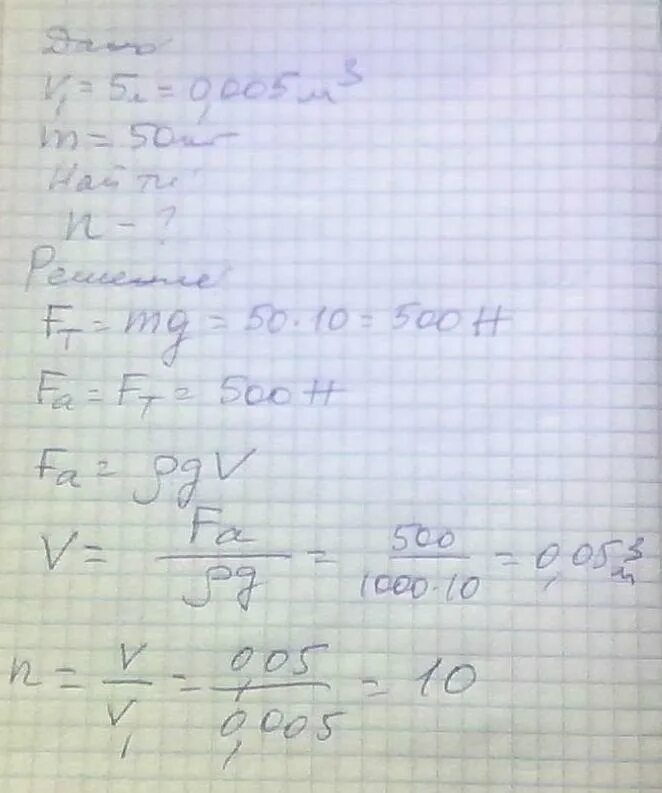 Дано
V₁ = 5л = 0,005 м³
m = 50кг
Найти
n - ?
Решение
Fт = mg = 50·10 = 500 Н
Fa = Fт = 500 Н
Fa = ρgV
V = Fa/ρg = 500/1000·10 = 0,05 м³
n = V/V₁ = 0,05/0,005 = 10